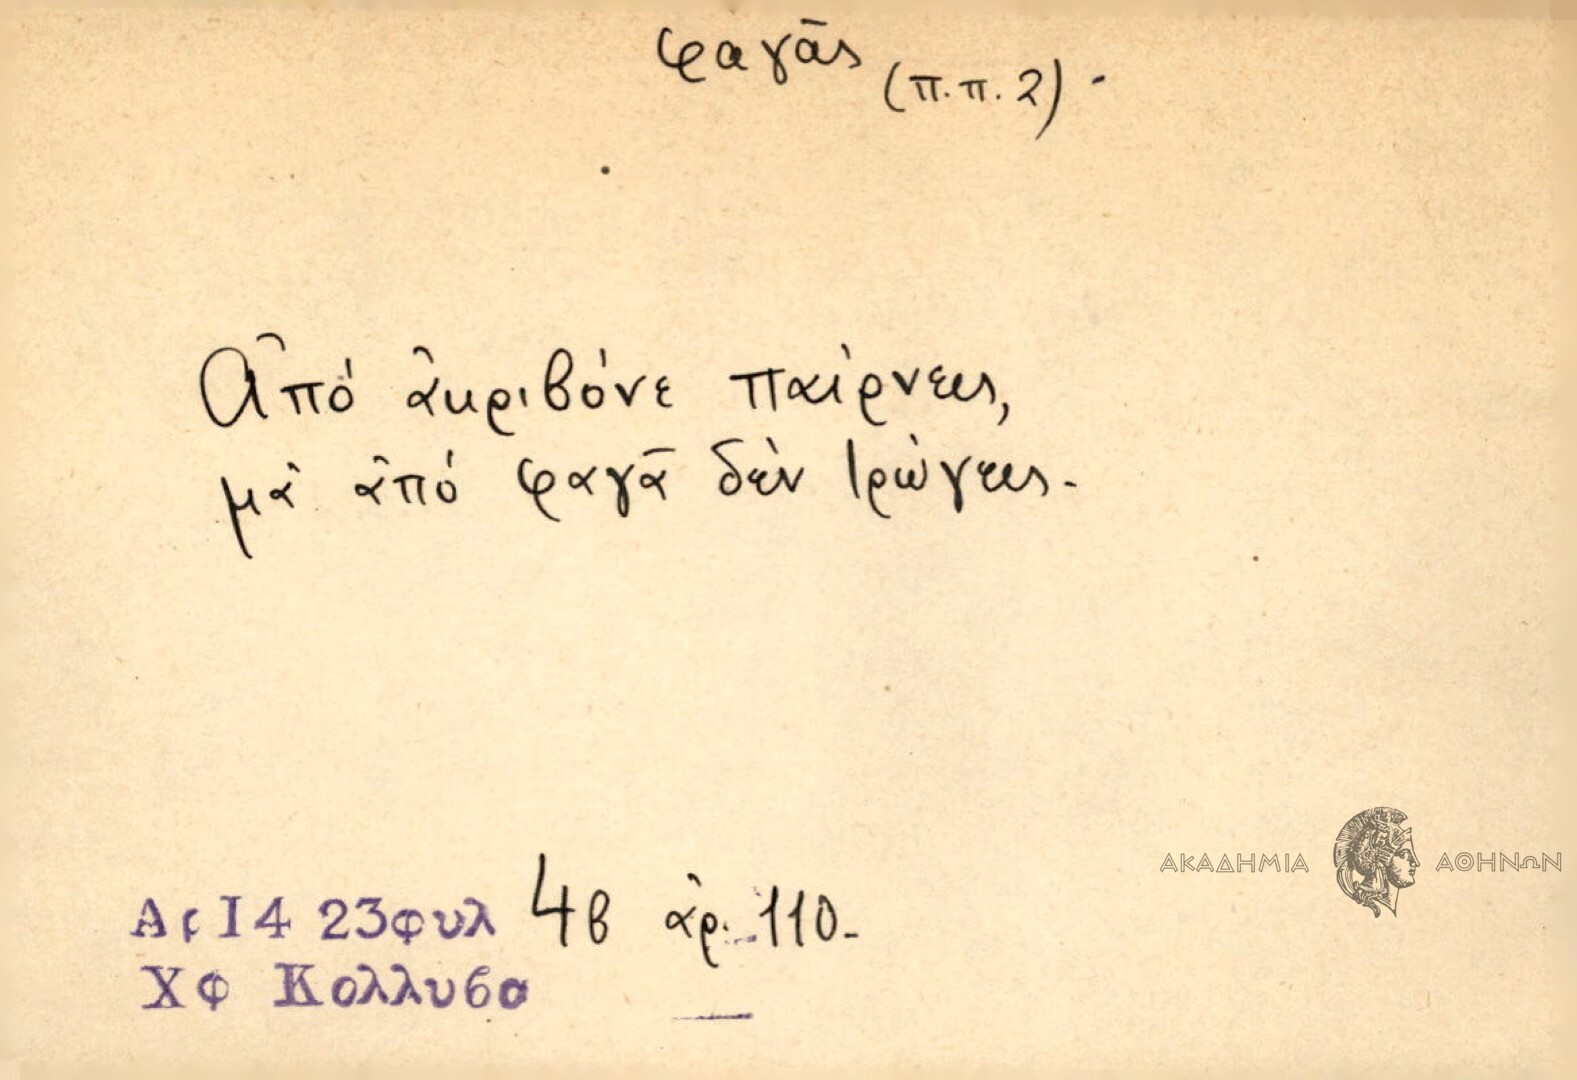 φαγᾶς (π.π. 2).
Ἀπό ἀκριβόνε παίρνεις,
μὰ ἀπό φαγᾶ δὲν τρώγεις.
Ας 14 23φυλ 4β ἀρ. 110.
Χφ Κολλυβα
ΑΚΑΔΗΜΙΑ ΑΘΗΝΩΝ